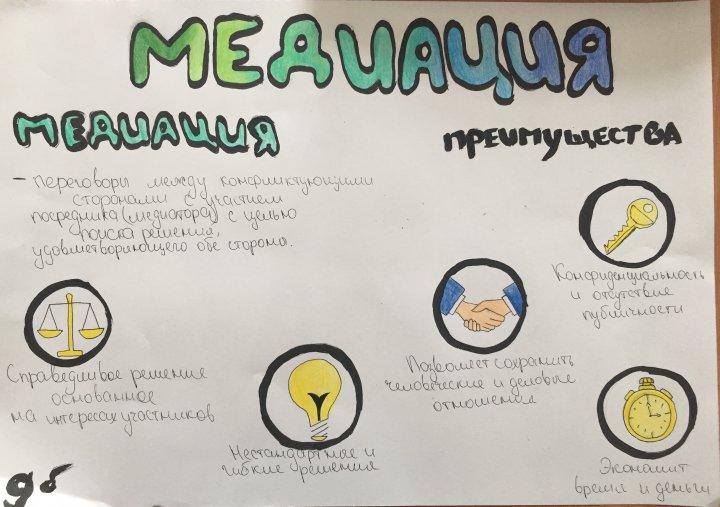 МЕДИАЦИЯ
МЕДИАЦИЯ
- переговоры между конфликтующими
сторонами с участием
посредника (медиатора) с целью
поиска решения,
удовлетворяющего обе стороны.
ПРЕИМУЩЕСТВА
Конфиденциальность
и отсутствие
публичности
Позволяет сохранить
человеческие и деловые
отношения
Справедливое решение
основанное
на интересах участников
Нестандартные и
гибкие решения
Экономит
время и деньги
9б